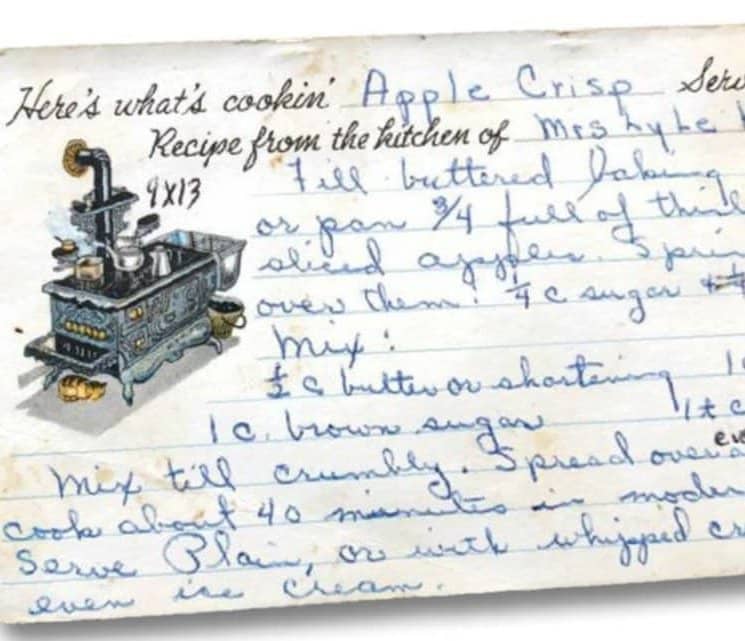 Here's what's cookin' Apple Crisp Serv
Recipe from the kitchen of Mrs Lyle
9X13
Fill buttered baking
or pan 3/4 full of thinl
sliced apples. Sprin
over them: 1/4 c sugar +
Mix:
1/2 c butter or shortening 1c
1 c. brown sugar 1 t c
Mix till crumbly. Spread over a
cook about 40 minutes in moder
Serve Plain, or with whipped cr
even ice cream.